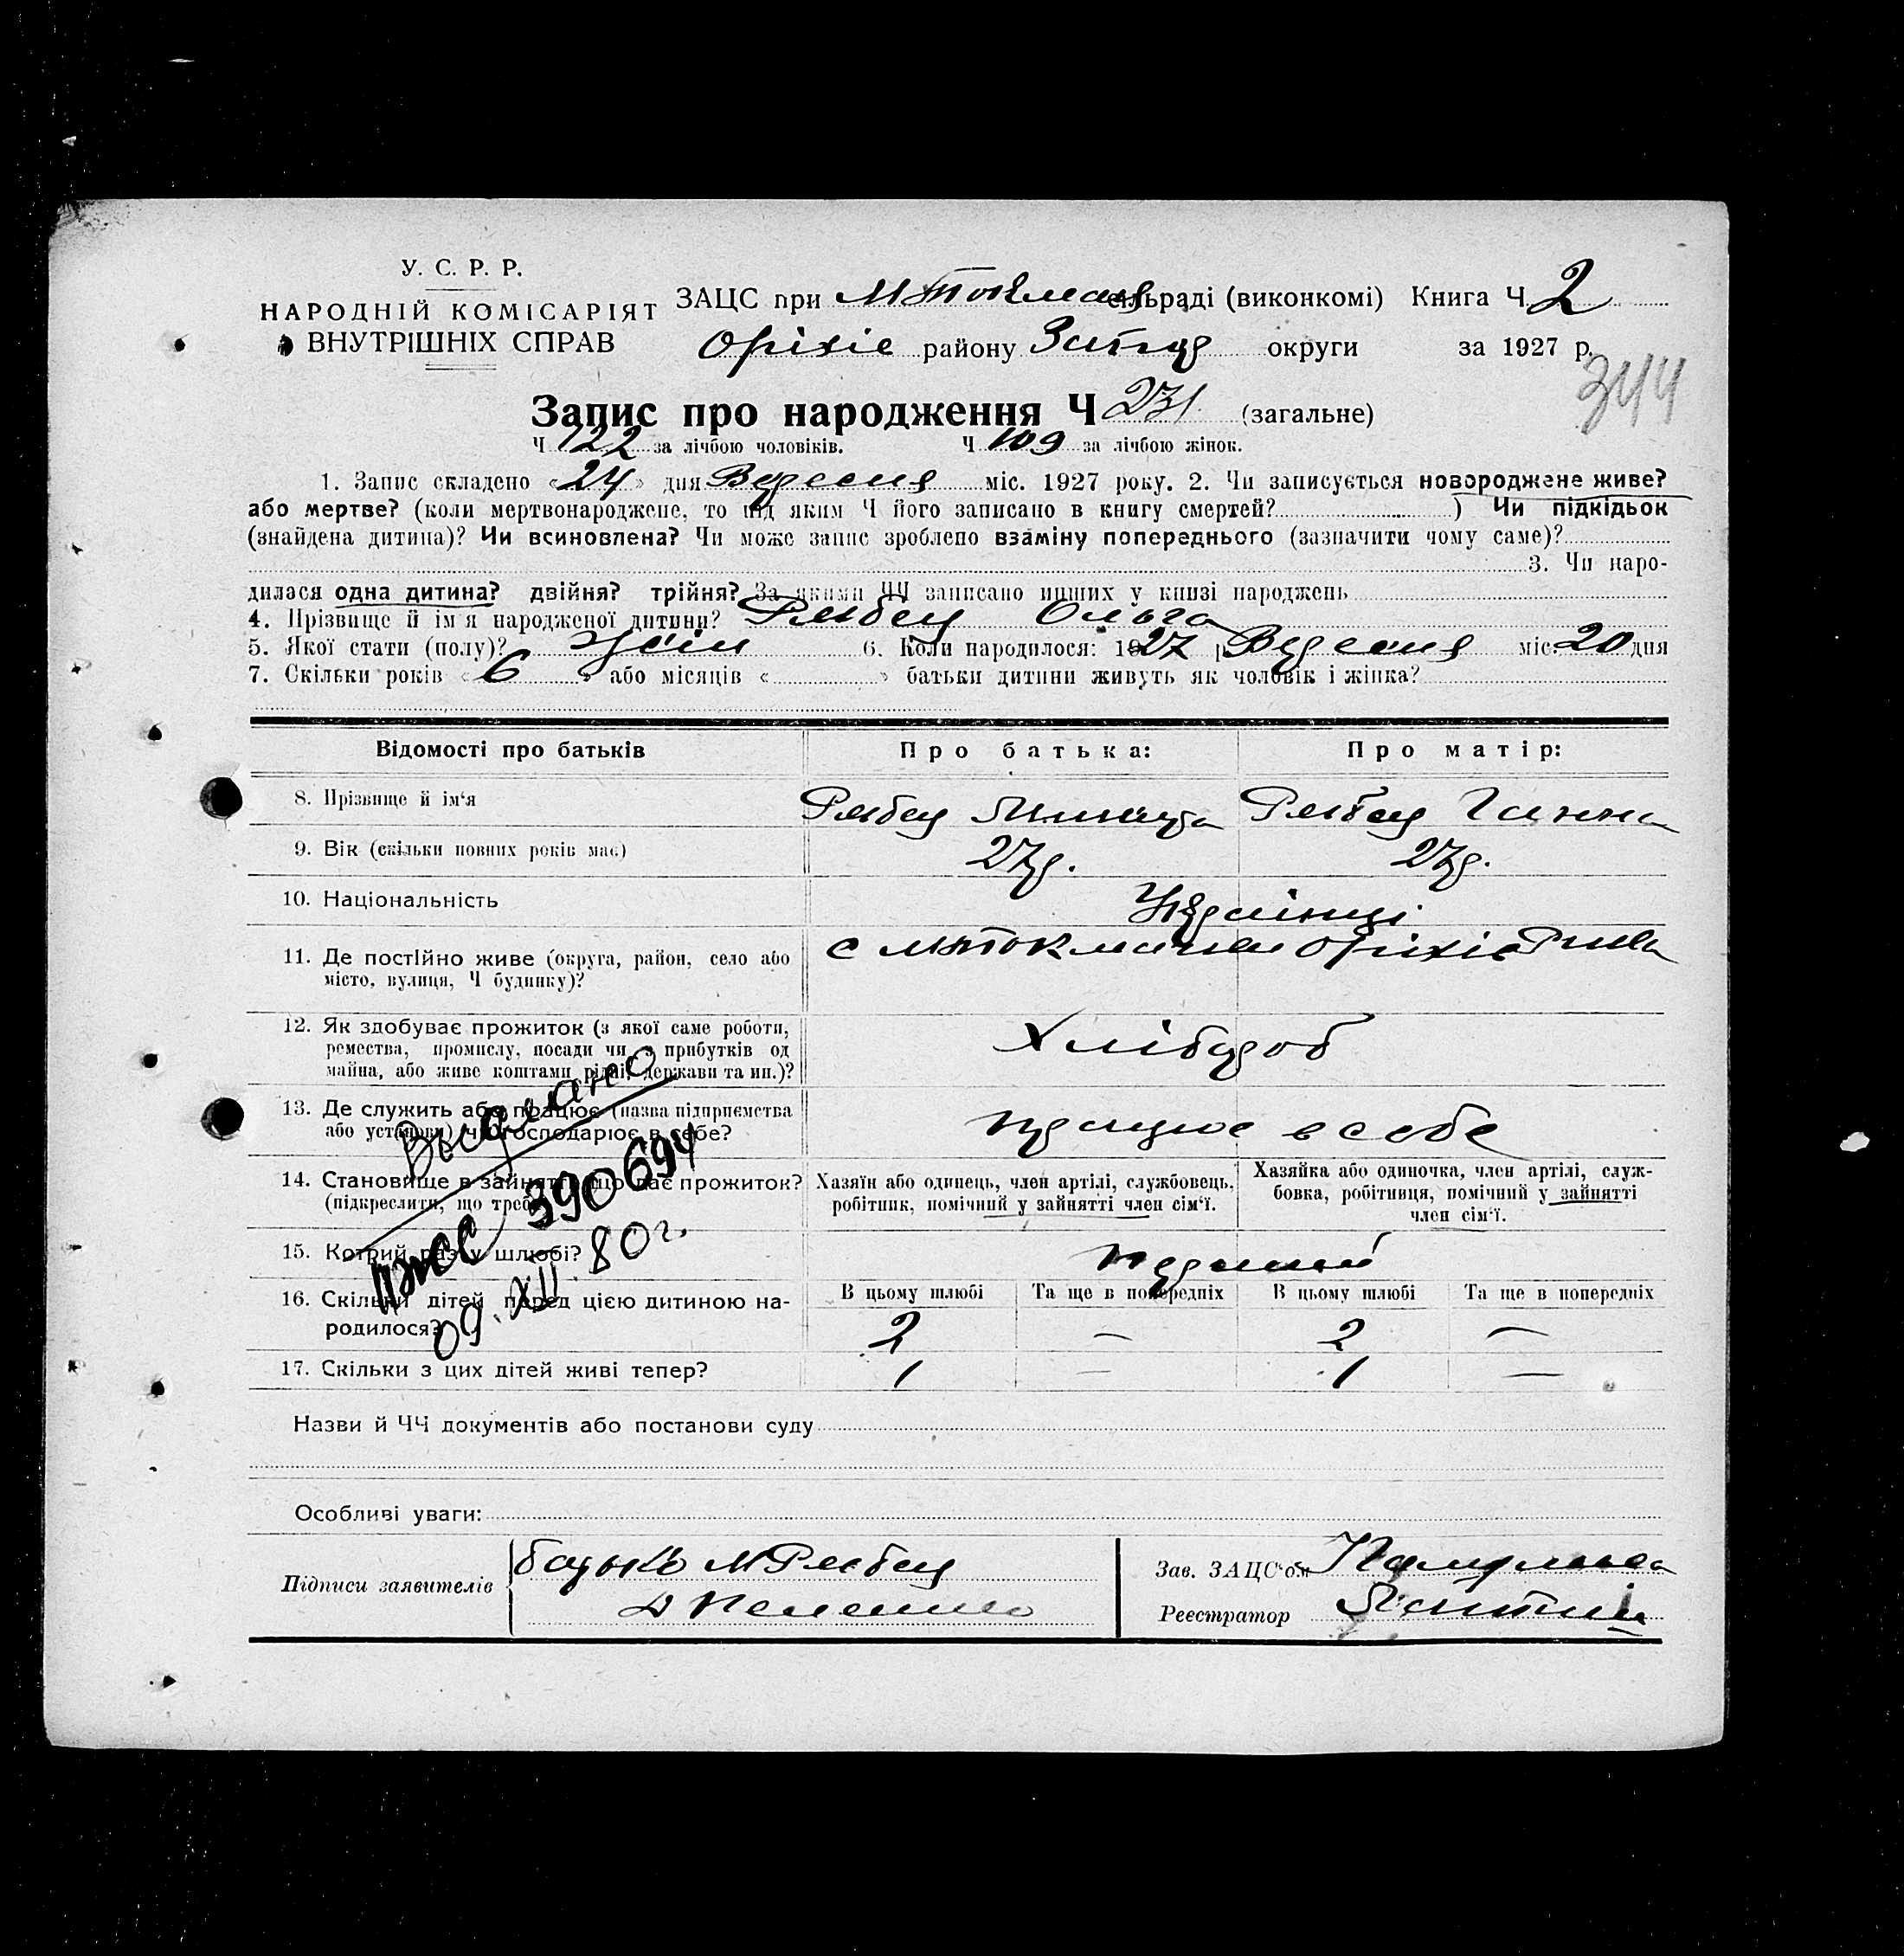 У. С. Р. Р.
НАРОДНІЙ КОМІСАРІЯТ
ВНУТРІШНІХ СПРАВ
ЗАЦС при М Токмач сельраді (виконкомі) Книга Ч 2
Оріхів району Запор округи за 1927 р.
344
Запис про народження Ч 231 (загальне)
Ч 122 за лічбою чоловіків. Ч 109 за лічбою жінок.
1. Запис складено «24» дня Вересня міс. 1927 року. 2. Чи записується новороджене живе?
або мертве? (коли мертвонароджене, то під яким Ч його записано в книгу смертей? ) Чи підкідьок
(знайдена дитина)? Чи всиновлена? Чи може запис зроблено взаміну попереднього (зазначити чому саме)?
3. Чи наро-
дилася одна дитина? двійня? трійня? За якими ЧЧ записано инших у книзі народжень
4. Прізвище й ім'я народженої дитини? Рябец Ольга
5. Якої стати (полу)? жін 6. Коли народилося: 1927 р Вересня міс. 20 дня
7. Скільки років «6» або місяців « » батьки дитини живуть як чоловік і жінка?
Відомості про батьків Про батька: Про матір:
8. Прізвище й ім'я Рябец Рябец Ганна
9. Вік (скільки повних років має) 27р. 27р.
10. Національність Українці
11. Де постійно живе (округа, район, село або
місто, вулиця, Ч будинку)?
с М Токмачки Оріхів Р-на
12. Як здобуває прожиток (з якої саме роботи,
ремества, промислу, посади чи з прибутків од
майна, або живе коштами рідні, держави та ин.)?
Хлібороб
13. Де служить або працює (назва підприємства
або установи) чи господарює в себе?
працює в себе
14. Становище в зайнятті що дає прожиток?
(підкреслити, що треба)
Хазяїн або одинець, член артілі, службовець,
робітник, помічний у зайнятті член сім'ї.
Хазяйка або одиночка, член артілі, служ-
бовка, робітниця, помічний у зайнятті
член сім'ї.
15. Котрий раз у шлюбі? перший
16. Скільки дітей перед цією дитиною на-
родилося?
В цьому шлюбі Та ще в попередніх В цьому шлюбі Та ще в попередніх
2 — 2 —
17. Скільки з цих дітей живі тепер? 1 — 1 —
Выдано
390694
09. XII. 80 г.
Назви й ЧЧ документів або постанови суду
Особливі уваги:
Підписи заявителів батько М Рябец
Зав. ЗАЦС'ом
Реестратор